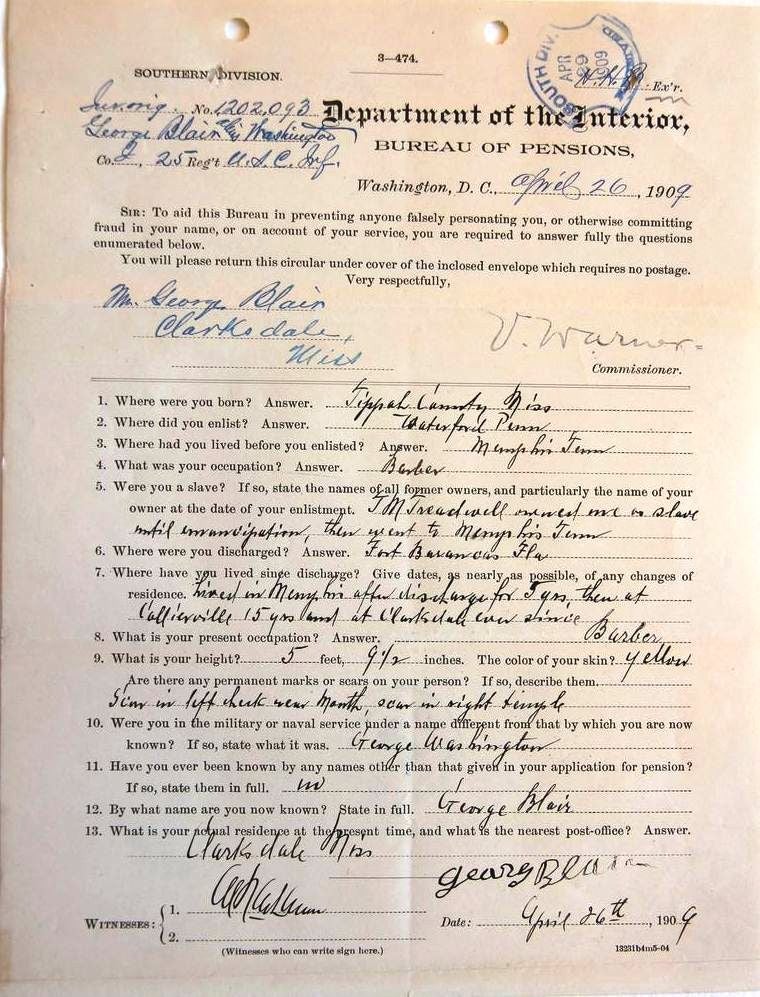 3—474.
SOUTHERN DIVISION.
SOUTH DIV.
APR
29
1909
Ex'r.
Inv. orig. No. 1202,093
Department of the Interior,
George Blair alias Washington
BUREAU OF PENSIONS,
Co. I, 25 Reg't U.S.C. Inf.
Washington, D. C., April 26, 1909
SIR: To aid this Bureau in preventing anyone falsely personating you, or otherwise committing
fraud in your name, or on account of your service, you are required to answer fully the questions
enumerated below.
You will please return this circular under cover of the inclosed envelope which requires no postage.
Very respectfully,
Mr. George Blair
Clarksdale,
Miss
V. Warner
Commissioner.
1. Where were you born? Answer. Tippah County Miss
2. Where did you enlist? Answer. Waterford Penn
3. Where had you lived before you enlisted? Answer. Memphis Tenn
4. What was your occupation? Answer. Barber
5. Were you a slave? If so, state the names of all former owners, and particularly the name of your
owner at the date of your enlistment. T M Treadwell owned me as slave
until emancipation, then went to Memphis Tenn
6. Where were you discharged? Answer. Fort Barancas Fla
7. Where have you lived since discharge? Give dates, as nearly as possible, of any changes of
residence. Lived in Memphis after discharge for 5 yrs, then at
Collierville 15 yrs and at Clarksdale ever since
8. What is your present occupation? Answer. Barber
9. What is your height? 5 feet, 9 1/2 inches. The color of your skin? yellow
Are there any permanent marks or scars on your person? If so, describe them.
Scar in left cheek near Mouth, scar in right temple
10. Were you in the military or naval service under a name different from that by which you are now
known? If so, state what it was. George Washington
11. Have you ever been known by any names other than that given in your application for pension?
If so, state them in full. no
12. By what name are you now known? State in full. George Blair
13. What is your actual residence at the present time, and what is the nearest post-office? Answer.
Clarksdale Miss
georg Blair
WITNESSES: 1.
2.
Date: April 26th, 1909
(Witnesses who can write sign here.)
13231b4m5-04